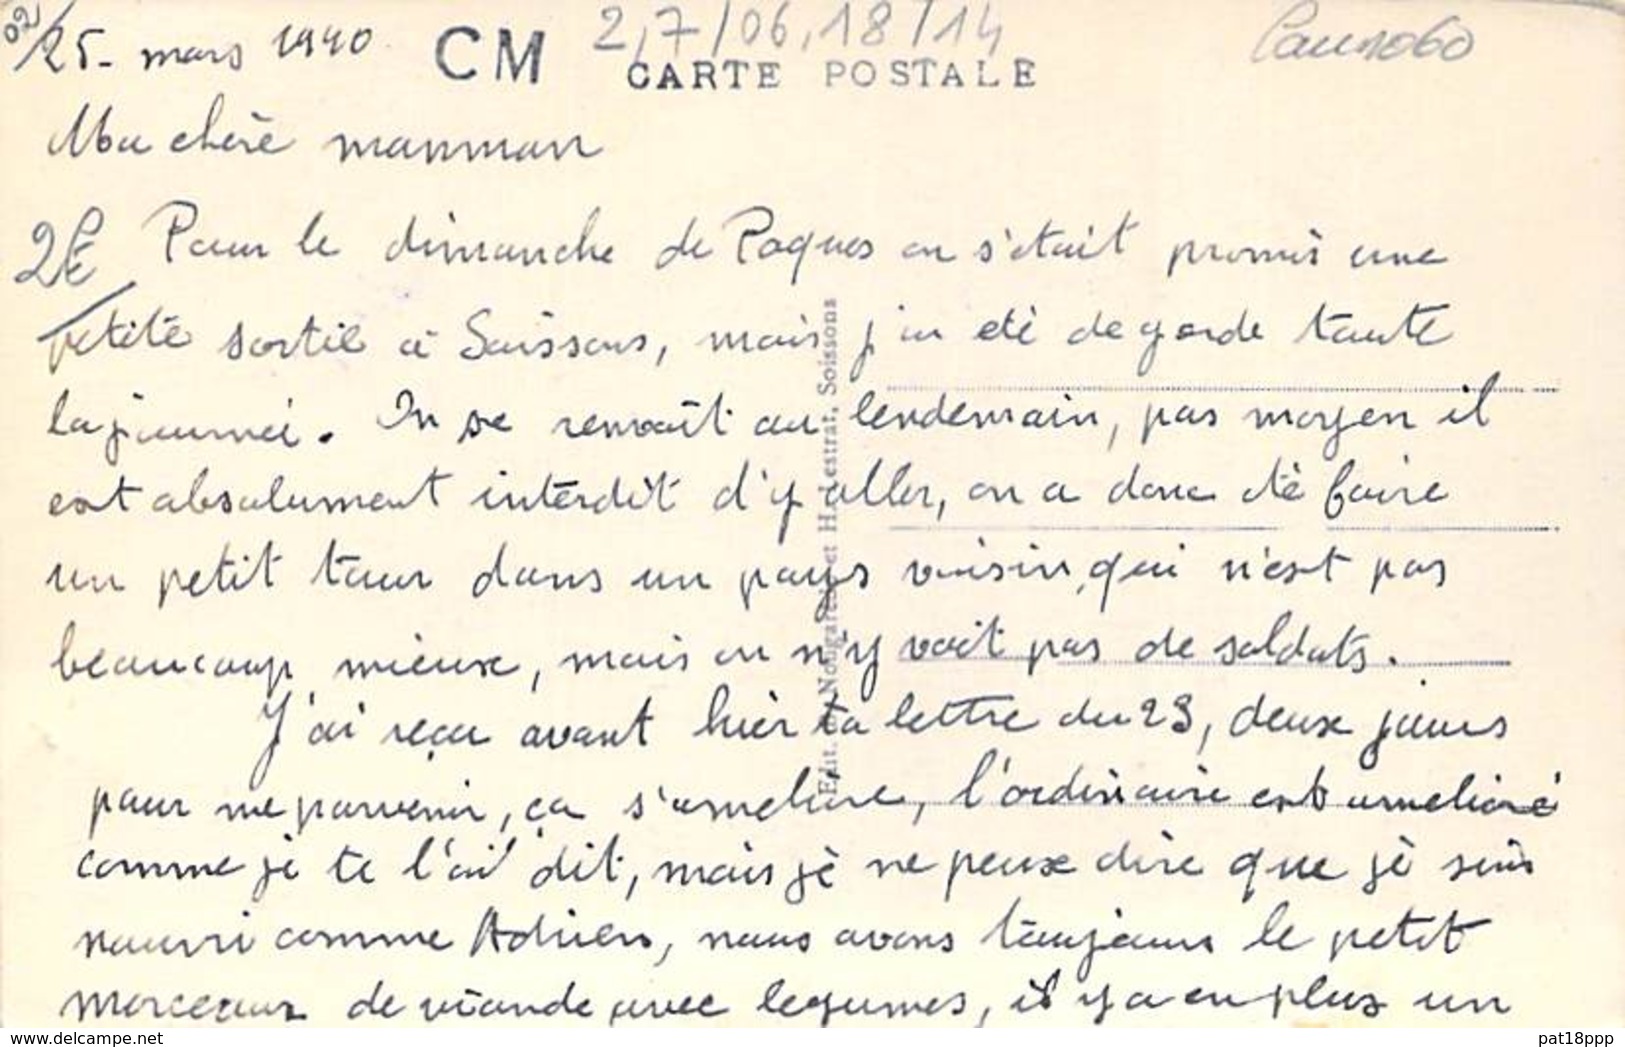 02/
25- mars 1940 CM 2,7/06,18/14
CARTE POSTALE
Ma chère manman
2€ Pour le dimanche de Paques on s'était promis une
petite sortie à Soissons, mais j'ai été de garde toute
la journée. On se renvoit au lendemain, pas moyen il
est absolument interdit d'y aller, on a donc été faire
un petit tour dans un pays voisin, qui n'est pas
beaucoup mieux, mais on n'y voit pas de soldats.
J'ai reçu avant hier ta lettre du 23, deux jours
pour me parvenir, ça s'ameliore, l'ordinaire est amelioré
comme je te l'ai dit, mais je ne peux dire que je suis
nourri comme Adrien, nous avons toujours le petit
morceaux de viande avec legumes, il y a en plus un
Edit. Nougarède et H. Lestrat, Soissons
pat18ppp